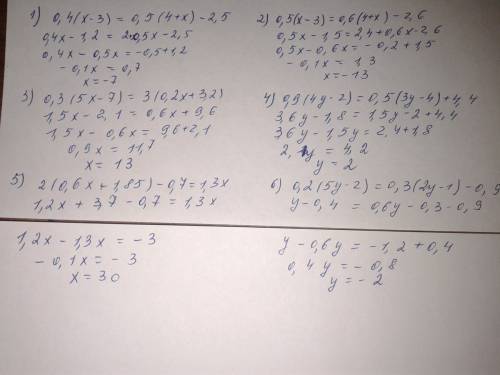 1) 0,4(x-3) = 0,5(4+x) - 2,5
0,4x - 1,2 = 2+0,5x - 2,5
0,4x - 0,5x = -0,5+1,2
-0,1x = 0,7
x = -7
2) 0,5(x-3) = 0,6(4+x) - 2,6
0,5x - 1,5 = 2,4 + 0,6x - 2,6
0,5x - 0,6x = -0,2 + 1,5
-0,1x = 1,3
x = -13
3) 0,3(5x-7) = 3(0,2x+3,2)
1,5x - 2,1 = 0,6x + 9,6
1,5x - 0,6x = 9,6+2,1
0,9x = 11,7
x = 13
4) 0,9(4y-2) = 0,5(3y-4) + 4,4
3,6y - 1,8 = 1,5y - 2 + 4,4
3,6y - 1,5y = 2,4 + 1,8
2,1y = 4,2
y = 2
5) 2(0,6x + 1,85) - 0,7 = 1,3x
1,2x + 3,7 - 0,7 = 1,3x
1,2x - 1,3x = -3
-0,1x = -3
x = 30
6) 0,2(5y-2) = 0,3(2y-1) - 0,9
y - 0,4 = 0,6y - 0,3 - 0,9
y - 0,6y = -1,2 + 0,4
0,4y = -0,8
y = -2